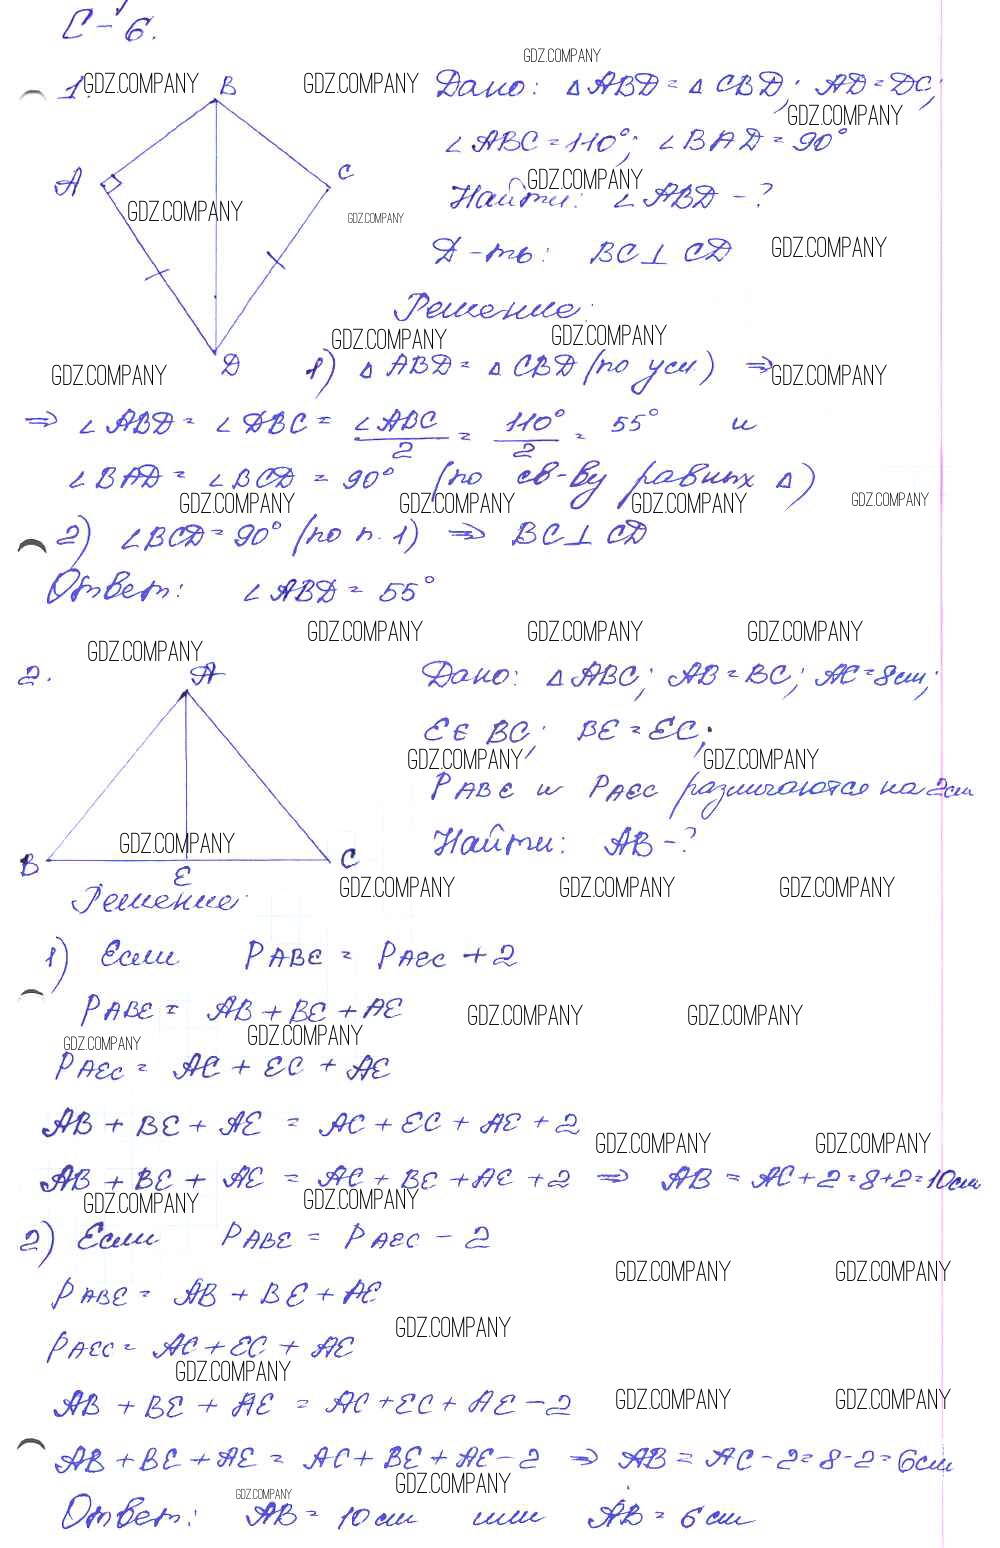 С-6.
GDZ.COMPANY
1. GDZ.COMPANY B GDZ.COMPANY Дано: △ABD = △CBD; AD = DC;
GDZ.COMPANY
∠ABC = 110°; ∠BAD = 90°
A C GDZ.COMPANY
Найти: ∠ABD - ?
GDZ.COMPANY GDZ.COMPANY
Д-ть: BC⊥CD GDZ.COMPANY
Решение:
GDZ.COMPANY GDZ.COMPANY
D 1) △ABD = △CBD (по усл) ⇒
GDZ.COMPANY GDZ.COMPANY
⇒ ∠ABD = ∠DBC = ∠ABC/2 = 110°/2 = 55° и
∠BAD = ∠BCD = 90° (по св-ву равных △)
GDZ.COMPANY GDZ.COMPANY GDZ.COMPANY GDZ.COMPANY
2) ∠BCD = 90° (по п. 1) ⇒ BC⊥CD
Ответ: ∠ABD = 55°
GDZ.COMPANY GDZ.COMPANY GDZ.COMPANY
GDZ.COMPANY
2. A Дано: △ABC; AB = BC; AC = 8см;
E∈BC; BE = EC;
GDZ.COMPANY GDZ.COMPANY
PABE и PAEC различаются на 2см
GDZ.COMPANY Найти: AB - ?
B E C
GDZ.COMPANY GDZ.COMPANY GDZ.COMPANY
Решение:
1) Если PABE = PAEC + 2
PABE = AB + BE + AE
GDZ.COMPANY GDZ.COMPANY
GDZ.COMPANY GDZ.COMPANY
PAEC = AC + EC + AE
AB + BE + AE = AC + EC + AE + 2
GDZ.COMPANY GDZ.COMPANY
AB + BE + AE = AC + BE + AE + 2 ⇒ AB = AC + 2 = 8 + 2 = 10см
GDZ.COMPANY GDZ.COMPANY
2) Если PABE = PAEC - 2
GDZ.COMPANY GDZ.COMPANY
PABE = AB + BE + AE
GDZ.COMPANY
PAEC = AC + EC + AE
GDZ.COMPANY
AB + BE + AE = AC + EC + AE - 2
GDZ.COMPANY GDZ.COMPANY
AB + BE + AE = AC + BE + AE - 2 ⇒ AB = AC - 2 = 8 - 2 = 6см
GDZ.COMPANY GDZ.COMPANY
Ответ: AB = 10см или AB = 6см